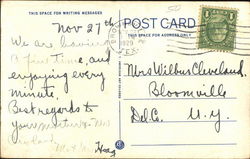 THIS SPACE FOR WRITING MESSAGES
POST CARD
THIS SPACE FOR ADDRESS ONLY
Nov 27th
We are having
a fine time, and
enjoying every
minute.
Best regards to
your
1929
Mrs Wilbur Cleveland,
Bloomville
Del. Co. N.Y.